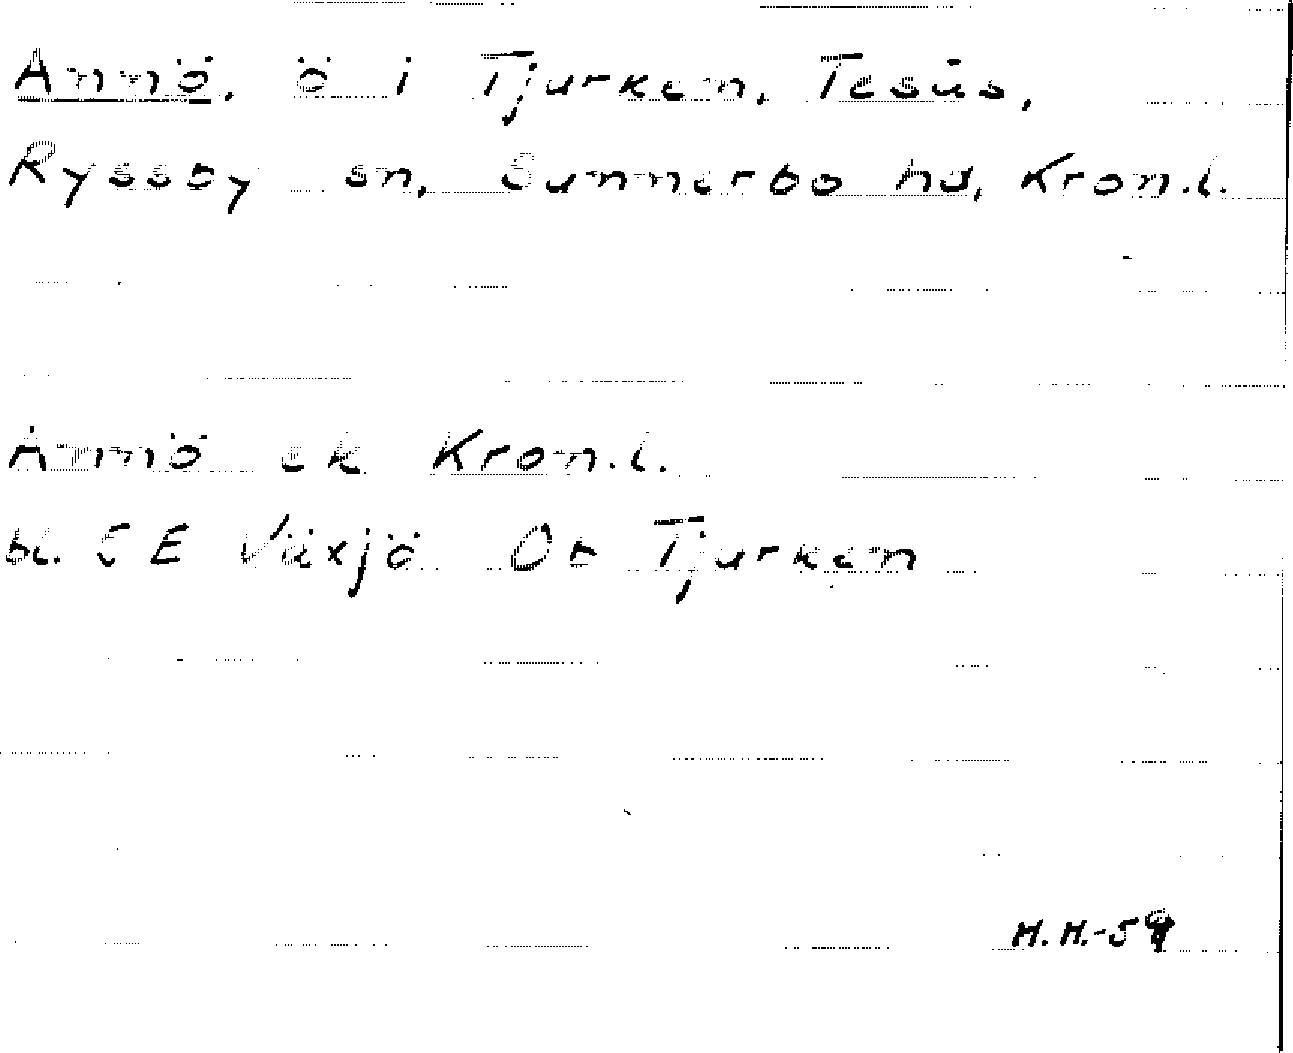 Annö, ö i Tjurken, Tesås,
Ryssby sn, Sunnerbo hd, Kron.l.
Annö ek Kron.l.
bl. 5 E Växjö Ob Tjurken
H.H.-59